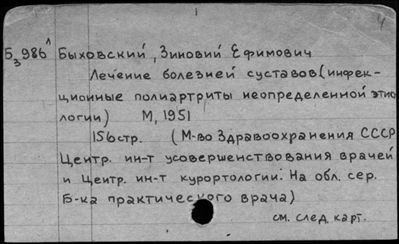 4
Б3986^л Быховский, Зиновий Ефимович
Лечение болезней суставов (инфек-
ционные полиартриты неопределенной этио
логии) М, 1951
156стр. (М-во Здравоохранения СССР
Центр. ин-т усовершенствования врачей
и Центр. ин-т курортологии. На обл. сер.
Б-ка практического врача)
см. след. карт.